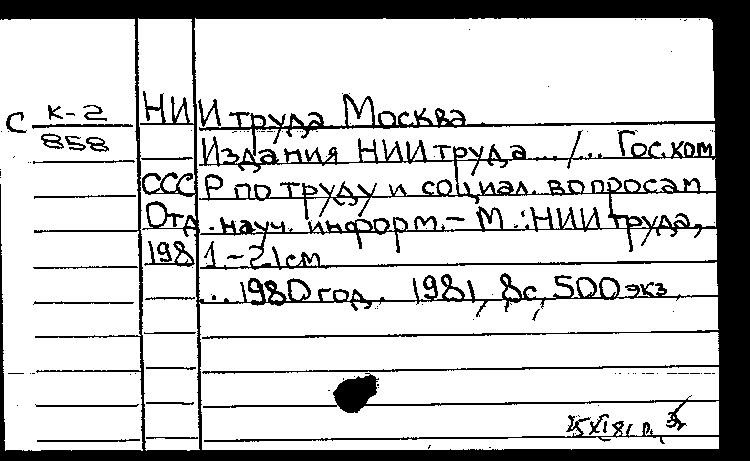 С К-2
858
НИИ труда Москва.
Издания НИИ труда .../... Гос.ком
СССР по труду и социал. вопросам
Отд. науч. информ. – М.: НИИ труда,
1981. – 21 см
... 1980 год. 1981, 8с, 500 экз.